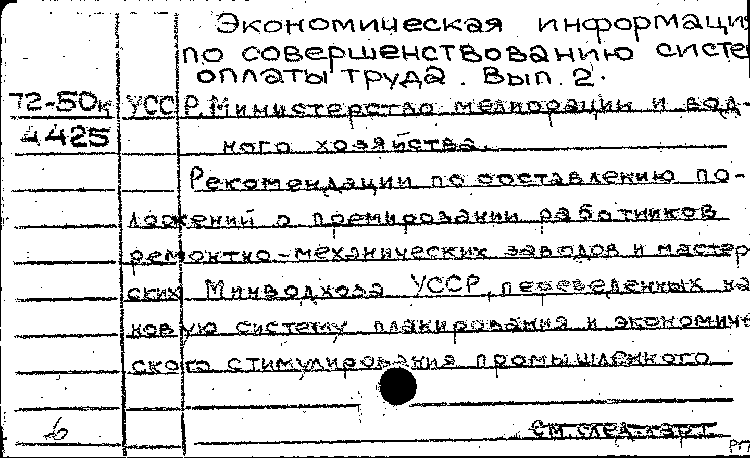 Экономическая информация
по совершенствованию систе
оплаты труда. Вып. 2.
72-50к УССР. Министерство мелиорации и вод-
4425 ного хозяйства.
Рекомендации по составлению по-
ложений о премировании работников
ремонтно-механических заводов и мастер
ских Минводхоза УССР, переведенных на
новую систему планирования и экономиче
ского стимулирования промышленного
б см. след. карт.
РП